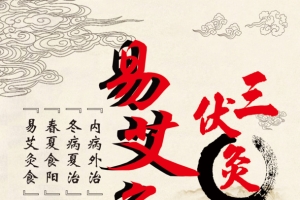 三伏灸
易艾
『内病外治』
『冬病夏治』
『春夏食阳』
『易艾灸食』